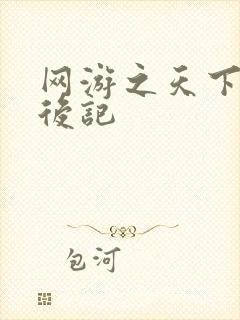 网游之天下
後記
包河